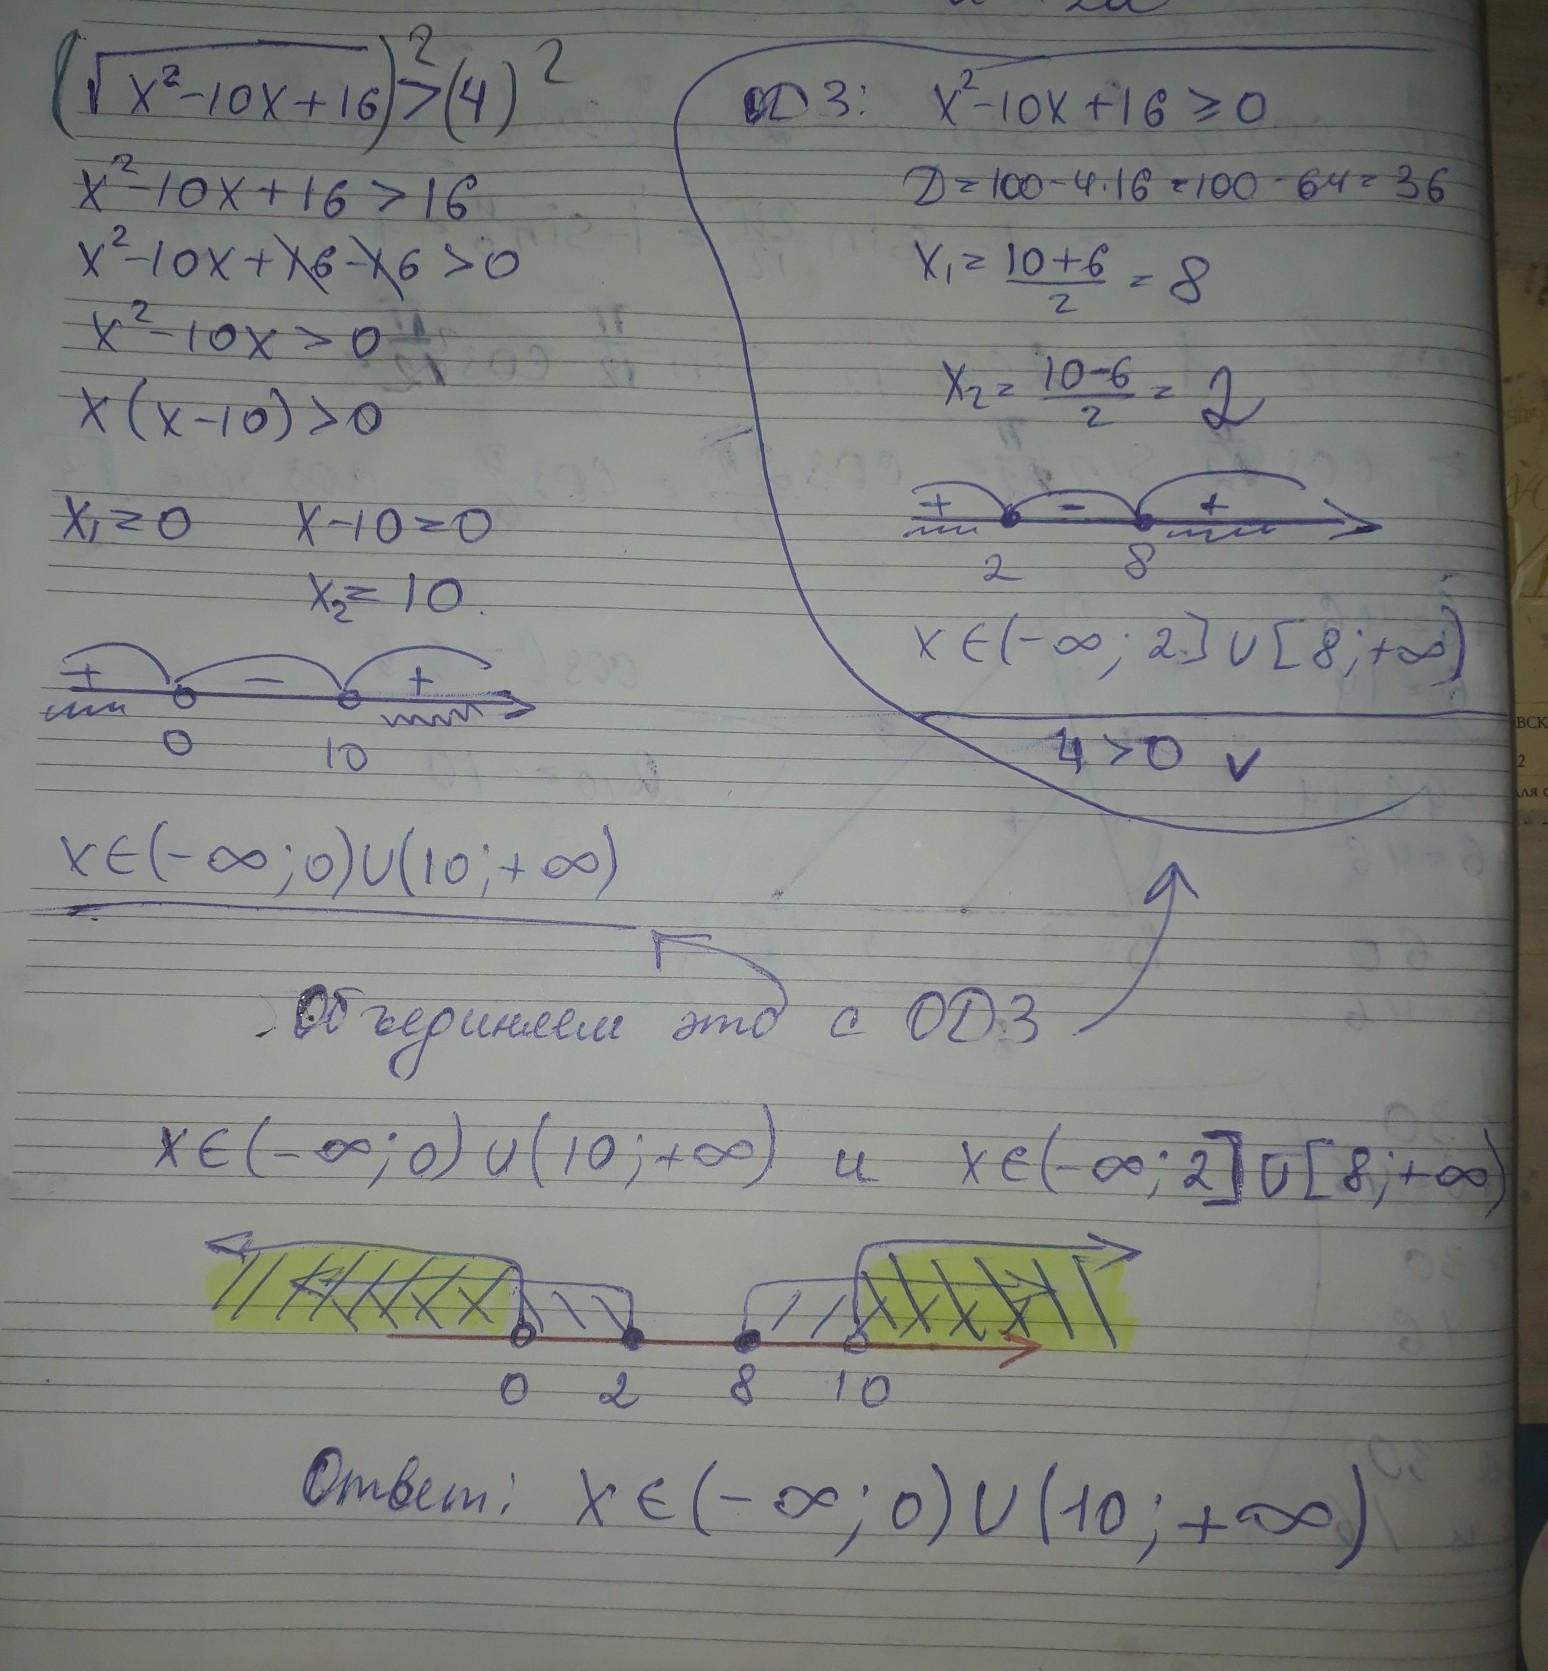 (√x²-10x+16)²>(4)²
x²-10x+16>16
x²-10x+16-16>0
x²-10x>0
x(x-10)>0
x₁=0 x-10=0
x₂=10.
+ - +
0 10
x∈(-∞;0)∪(10;+∞)
ОДЗ: x²-10x+16≥0
D=100-4·16=100-64=36
x₁=10+6/2=8
x₂=10-6/2=2
+ - +
2 8
x∈(-∞;2]∪[8;+∞)
4>0 v
Объединяем это с ОДЗ
x∈(-∞;0)∪(10;+∞) и x∈(-∞;2]∪[8;+∞)
0 2 8 10
Ответ: x∈(-∞;0)∪(10;+∞)